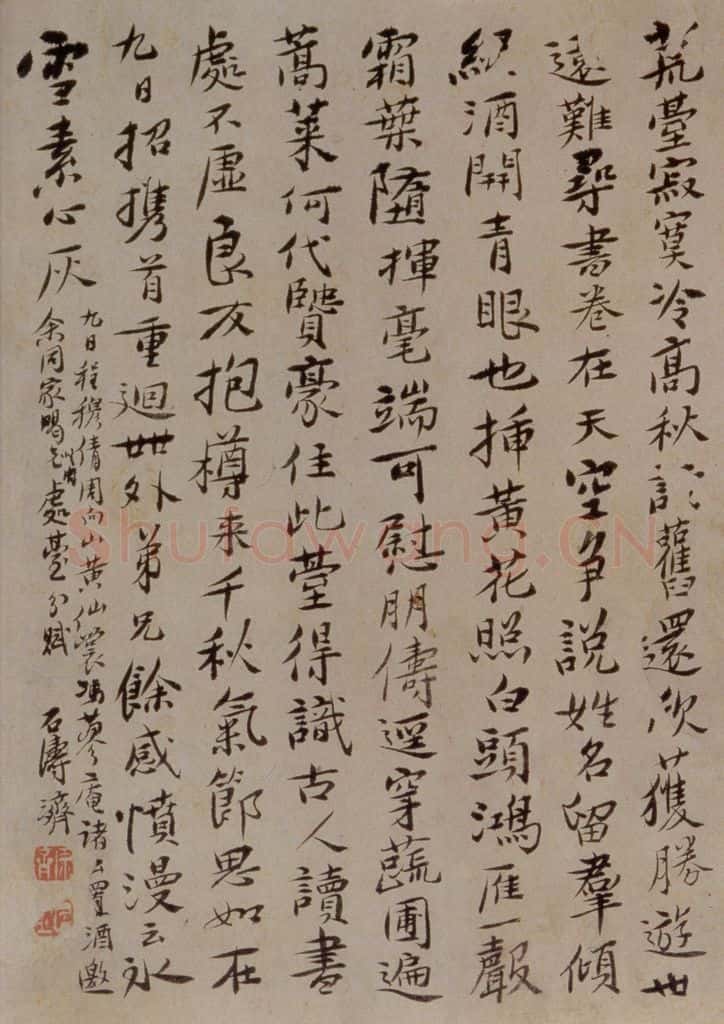 荒臺寂寞冷高秋訪舊還欣獲勝遊世
遠難尋書卷在天空爭說姓名留羣傾
綠酒開青眼也插黃花照白頭鴻雁一聲
霜葉墮揮毫端可慰朋儔逕穿蔬圃遍
蒿萊何代贒豪住此臺得識古人讀書
處不虛良友抱樽來千秋氣節思如在
九日招攜首重迴世外弟兄餘感憤漫云冰
雪素心灰
九日程穆倩周向山黃仙裳蓼庵諸公置酒邀
余同家處臺分賦
石濤濟
Shufawang.CN